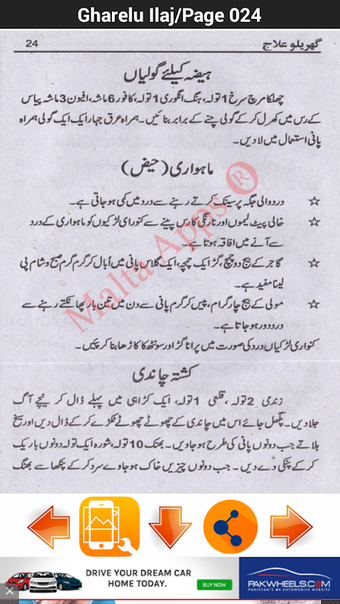 Gharelu Ilaj/Page 024
گھریلو علاج
24
ہیضہ کیلئے گولیاں
چھلکا مرچ سرخ 1 تولہ، ہنگ انگوری 1 تولہ، کافور 6 ماشہ، افیون 3 ماشہ پیاس
کے رس میں کھرل کر کے گولی چنے کے برابر بنائیں۔ ہمراہ عرق چہار ایک ایک گولی ہمراہ
پانی استعمال میں لا دیں۔
ماہواری (حیض)
☆ درد والی جگہ پر سینک کرتے رہنے سے درد میں کمی ہو جاتی ہے۔
☆ خالی پیٹ لیموں اور نارنگی کا رس پینے سے کنواری لڑکیوں کو ماہواری کے درد
سے آنے میں افاقہ ہوتا ہے۔
☆ گاجر کے بیج دو چمچ، گڑ ایک چمچ، ایک گلاس پانی میں اُبال کر گرم گرم صبح و شام پی
لینا مفید ہے۔
☆ مولی کے بیج چار گرام، پیس کر گرم پانی سے دن میں تین بار پھانکتے رہنے سے
درد دور ہو جاتا ہے۔
کنواری لڑکیاں درد کی صورت میں پرانا گڑ اور سونٹھ کا کاڑھا بنا کر پئیں۔
کشتہ چاندی
زندی 2 تولہ، قلعی 1 تولہ، ایک کڑاہی میں پہلے ڈال کر نیچے آگ
جلا دیں۔ پگھل جائے اس میں چاندی کے چھوٹے چھوٹے ٹکڑے کر کے ڈال دیں اور سیخ
ہلاتے جب دونوں پانی کی طرح ہو جاویں۔ بھنگ 10 تولہ، شورہ ایک تولہ دونوں باریک
کر کے چٹکی دے دیں۔ جب دونوں چیزیں خاک ہو جاوے سرد کر کے پنکھا سے بھنگ
Malta Apps ®
DRIVE YOUR DREAM CAR
HOME TODAY.
BUY NOW
PAKWHEELS.COM
PAKISTAN'S #1 AUTOMOBILE WEBSITE